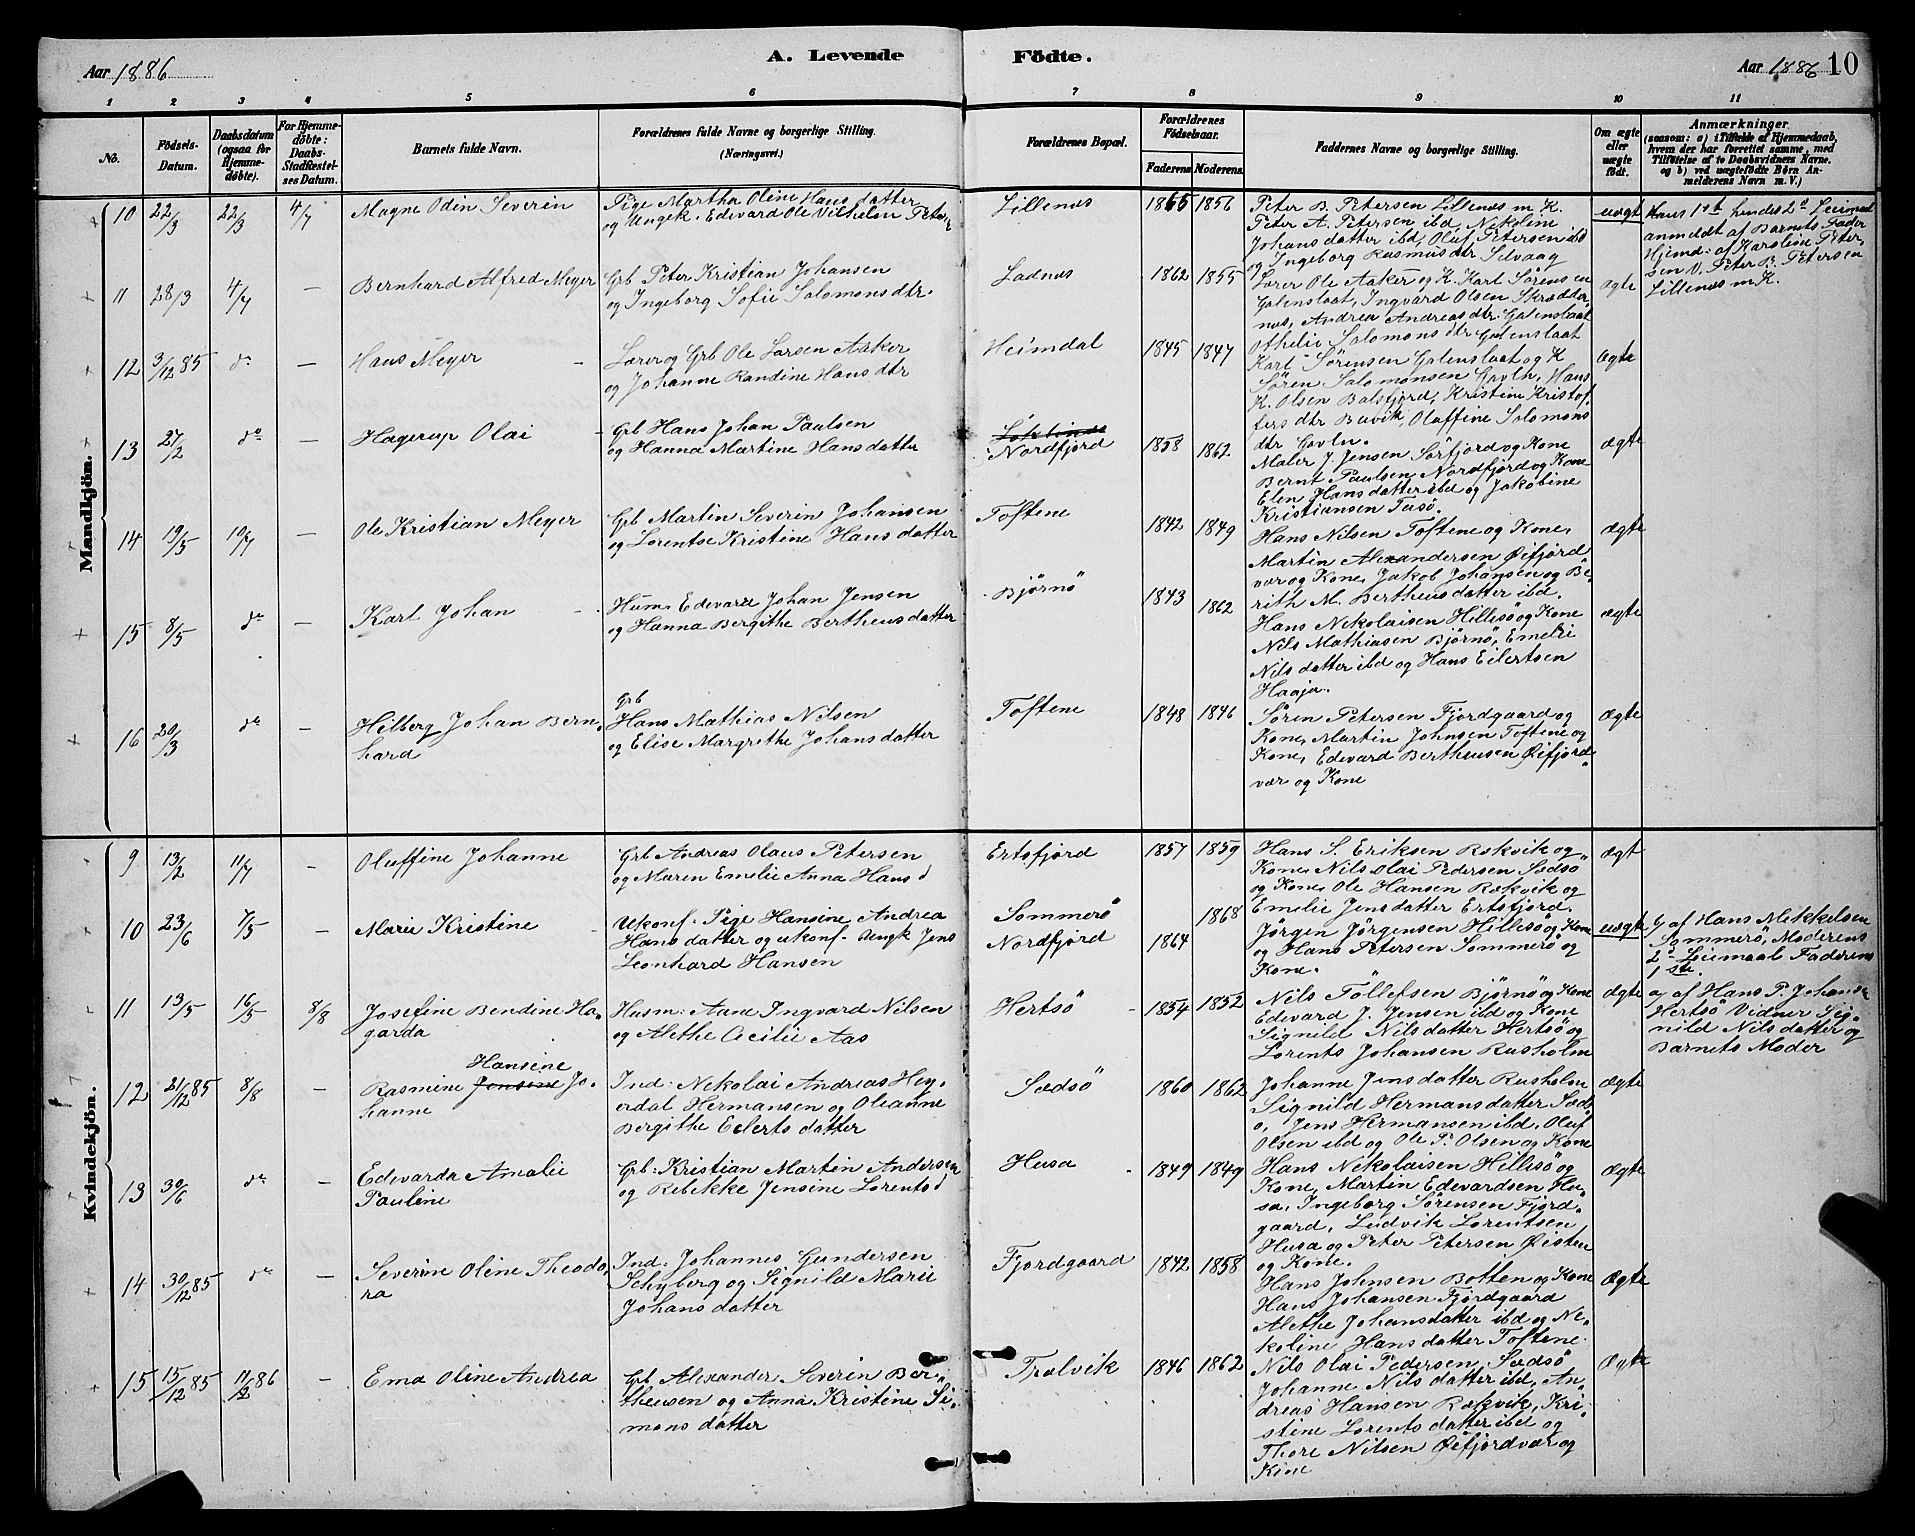 Aar 1886
A. Levende Födte.
Aar 1886 10
1 2 3 4 5 6 7 8 9 10 11
No.
Födsels-
Datum.
Daabsdatum
(ogsaa for
Hjemme-
døbte).
For Hjemme-
döbte:
Daabs-
Stadfæstel-
ses Datum.
Barnets fulde Navn.
Forældrenes fulde Navne og borgerlige Stilling.
(Næringsvei.)
Forældrenes Bopæl.
Forældrenes
Födselsaar.
Faderens. Moderens.
Faddernes Navne og borgerlige Stilling.
Om ægte
eller
uægte
födt.
Anmærkninger.
(saasom: a) i Tilfælde af Hjemmedaab,
hvem der har forrettet samme, med
Tilföielse af to Daabsvidners Navne.
og b) ved uægtefödte Börn An-
melderens Navn m. V.)
Mandkjön.
10 22/3 22/3 4/7
Magne Odin Severin
Pige Martha Oline Hans datter
og Ungk. Edevard Ole Vilhelm Peters
Lillenes
1865 1856
Peter B. Petersen Lillenes m. K.
Peter A. Petersen ibd, Nekoline
Johans datter ibd, Oluf Petersen ibd
og Ingeborg Rasmusdtr Selvaag
uægt
Hans 1st hendes 2d Leiermaal
anmeldt af Barnets Fader
Hjemd: af Karoline Peter
sen V. Peter B. Petersen
Lillenes m K.
11 28/3 4/7 —
Bernhard Alfred Meyer
Grb Peter Kristian Johansen
og Ingeborg Sofie Salomons dtr.
Ladnes
1862 1855
Lærer Ole Aaker og K. Karl Sörensen
Galenslaat, Ingvard Olsen Skrædder
nes, Andrea Andreas dtr. Galenslaat
Othelie Salomons dtr Galenslaat
ægte
12 3/12 85 do —
Hans Meyer
Lærer og Grb Ole Larsen Aaker
og Johanne Randine Hans dtr
Heimdal
1845 1847
Karl Sörensen Galenslaat og K
Sören Salomonsen Gavln, Hans
K. Olsen Balsfjord, Kristine Kristof
fers dtr Buvik, Oluffine Salomons
dtr Gavln.
Ægte
13 27/2 do —
Hagerup Olai
Grb Hans Johan Paulsen
og Hanna Martine Hans datter
Nordfjord
1858 1862
Maler J. Jensen Sörfjord og Kone
Bernt Paulsen, Nordfjord og Kone
Elen Hans datter ibd og Jakobine
Kristiansen Tusö.
ægt
14 19/5 10/7 —
Ole Kristian Meyer
Grb Martin Severin Johansen
og Lorentse Kristine Hans datter
Toftene
1842 1849
Hans Nilsen Toftene og Kone,
Martin Alexandersen Øifjord
vær og Kone, Jakob Johansen og Be
rith M. Bertheus datter ibd.
ægte
15 8/5 do —
Karl Johan
Husm. Edevard Johan Jensen
og Hanna Bergithe Bertheus datter
Bjørnö
1843 1862
Hans Nekolaisen Hillesö og Kone
Nils Mathiasen Bjørnö, Emelie
Nils datter ibd og Hans Eilertsen
Haaja.
ægte
16 20/3 do —
Hilberg Johan Bern
hard
Grb
Hans Mathias Nilsen
og Elise Margrethe Johans datter
Toftene
1848 1846
Sören Petersen Fjordgaard og
Kone, Martin Johnsen Toftene og
Kone, Edevard Bertheusen Øifjord
vær og Kone
Ægte
Kvindekjön.
9 13/2 11/7 —
Oluffine Johanne
Grb Andreas Olaus Petersen
og Maren Emelie Anna Hans d
Ertsfjord
1857 1859
Hans S. Eriksen Rekvik og
Kone, Nils Olai Pedersen Sædsö
og Kone, Ole Hansen Rekvik og
Emelie Jens datter Ertsfjord.
Ægt
10 23/6 7/5 —
Marie Kristine
Ukonf. Pige Hansine Andrea
Hans datter og ukonf. Ungk Jens
Leonhard Hansen
Sommerö
Nordfjord
1864 1868
Jörgen Jörgensen Hillesö og Kone
og Hans Petersen Sommerö og
Kone.
uægte
b/ af Hans Mikkelsen
Sommerö, Moderens
2d Leiermaal Faderens
1ste.
11 13/5 16/5 8/8
Josefine Bendine Ha-
garda
Husm: Aane Ingvard Nilsen
og Alethe Cecilie Aas
Hertsö
1854 1852
Nils Tollefsen Bjørnö og Kone
Edevard J. Jensen ibd og Kone
Signild Nils datter Hertsö og
Lorents Johansen Rusholm
ægte
a/ af Hans P. Johanse
Hertsö Vidner Sig-
nild Nils datter og
Barnets Moder
12 21/12 85 8/8 —
Hansine
Rasmine Jensine Jo-
hanne
Ind: Nekolai Andreas Hey-
erdal Hermansen og Oleanne
Bergithe Eilerts datter
Sædsö
1860 1862
Johanne Jens datter Rusholm
Signild Hermans datter Sæds
ö, Jens Hermansen ibd. Oluf
Olsen ibd og Ole P. Olsen og Kone
Ægte
13 30/6 do —
Edevarda Amalie
Pauline
Grb: Kristian Martin Andersen
og Rebekke Jensine Lorents d
Husa
1849 1849
Hans Nekolaisen Hillesö og
Kone, Martin Edevardsen Hu-
sa, Ingeborg Sörensen Fjord-
gaard, Ludvik Lorentsen
Husa og Peter Petersen Øisteu
og Kone.
Ægte
14 30/12 85 do —
Severine Oline Theodo
ra
Ind. Johannes Gundersen
Schyberg og Signild Marie
Johans datter
Fjordgaard
1842 1858
Hans Johnsen Botten og Kone
Hans Johansen Fjordgaard
Alethe Johansdatter ibd og Ne-
koline Hans datter Toftene
Ægte
15 15/12 85 11/2 86 —
Ema Oline Andrea
Grb Alexander Severin Ber-
theusen og Anna Kristine Si-
mons datter
Trælvik
1846 1862
Nils Olai Pedersen, Sædsö
Johanne Nils datter ibd, An-
dreas Hansen Rekvik, Kri-
stine Lorents datter ibd og
Thore Nilsen Øifjordvær og
Kone
Ægte